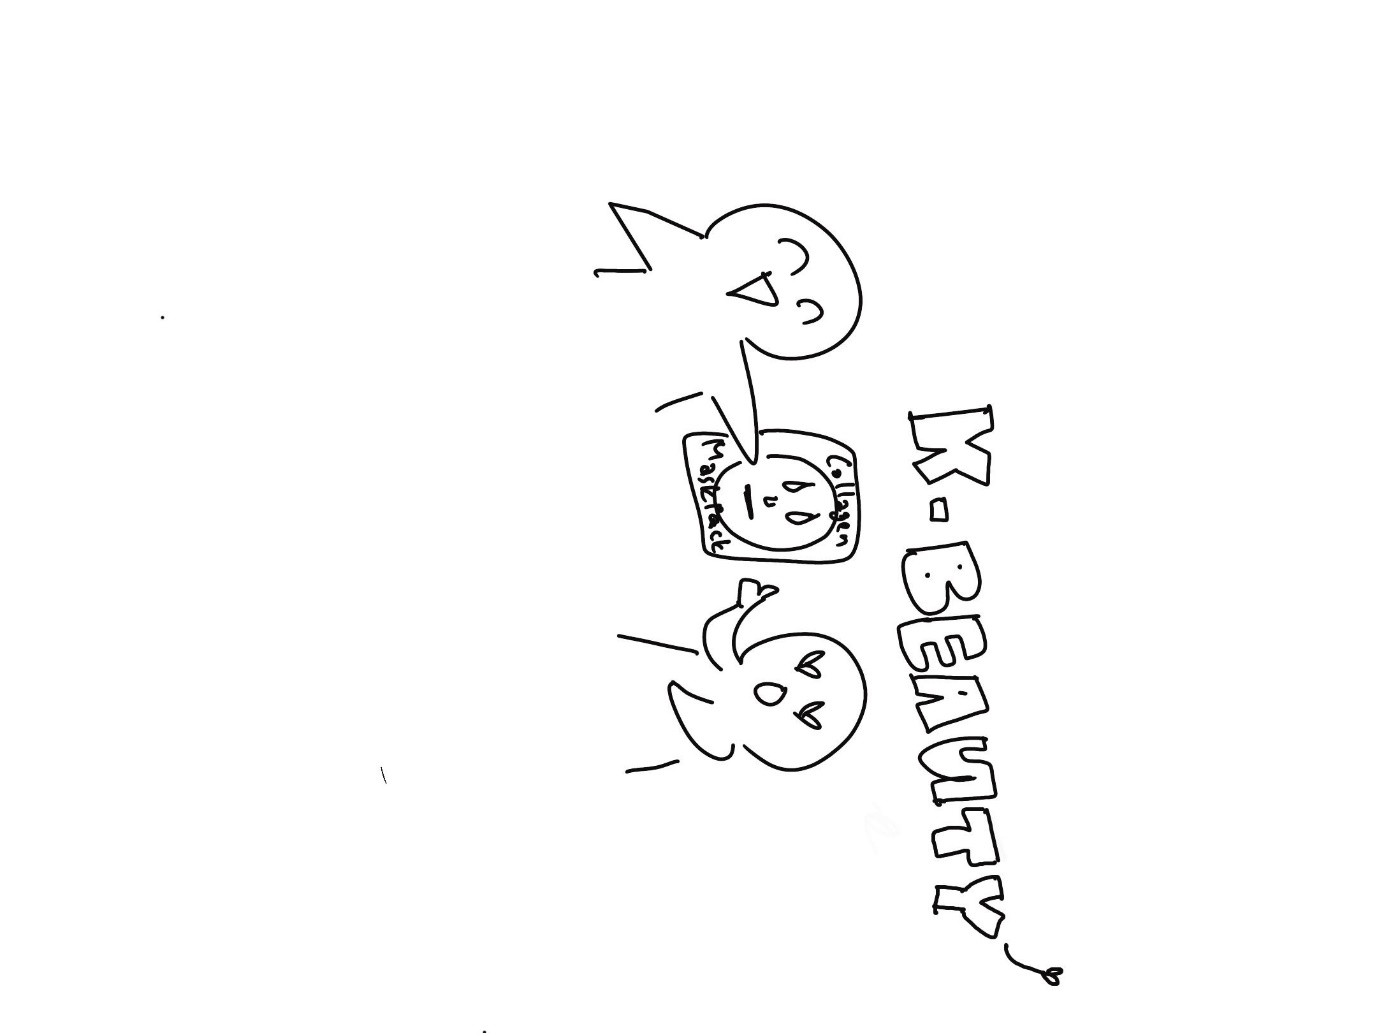 K-BEAUTY
Collagen
Mask Pack